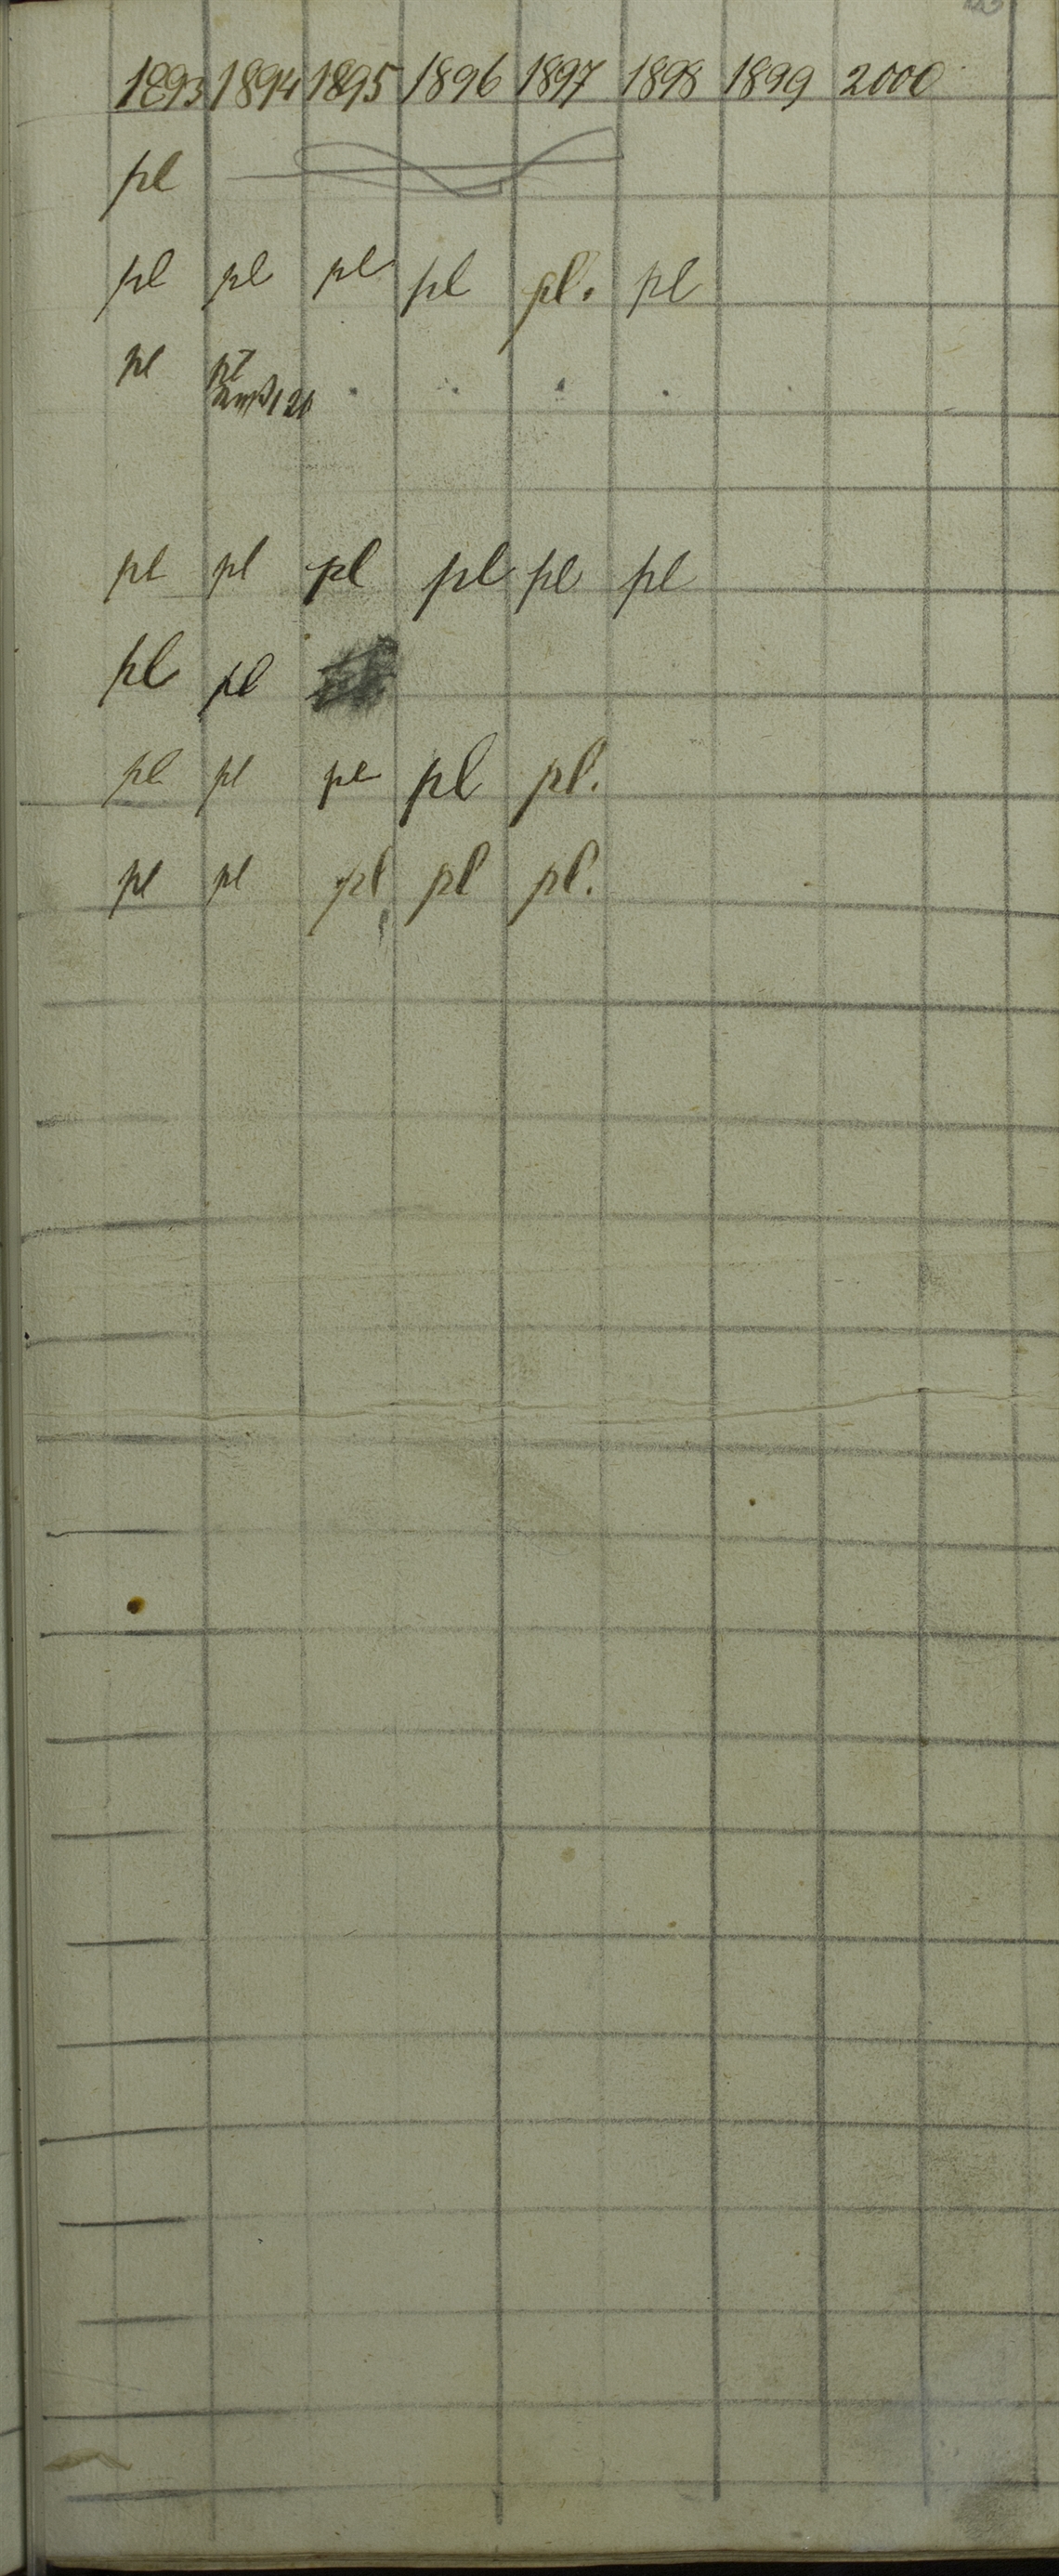 1893 1894 1895 1896 1897 1898 1899 2000
pl
pl pl pl pl pl. pl
pl pl
pl pl pl pl pl pl
pl pl
pl pl pl pl pl.
pl pl pl pl pl.